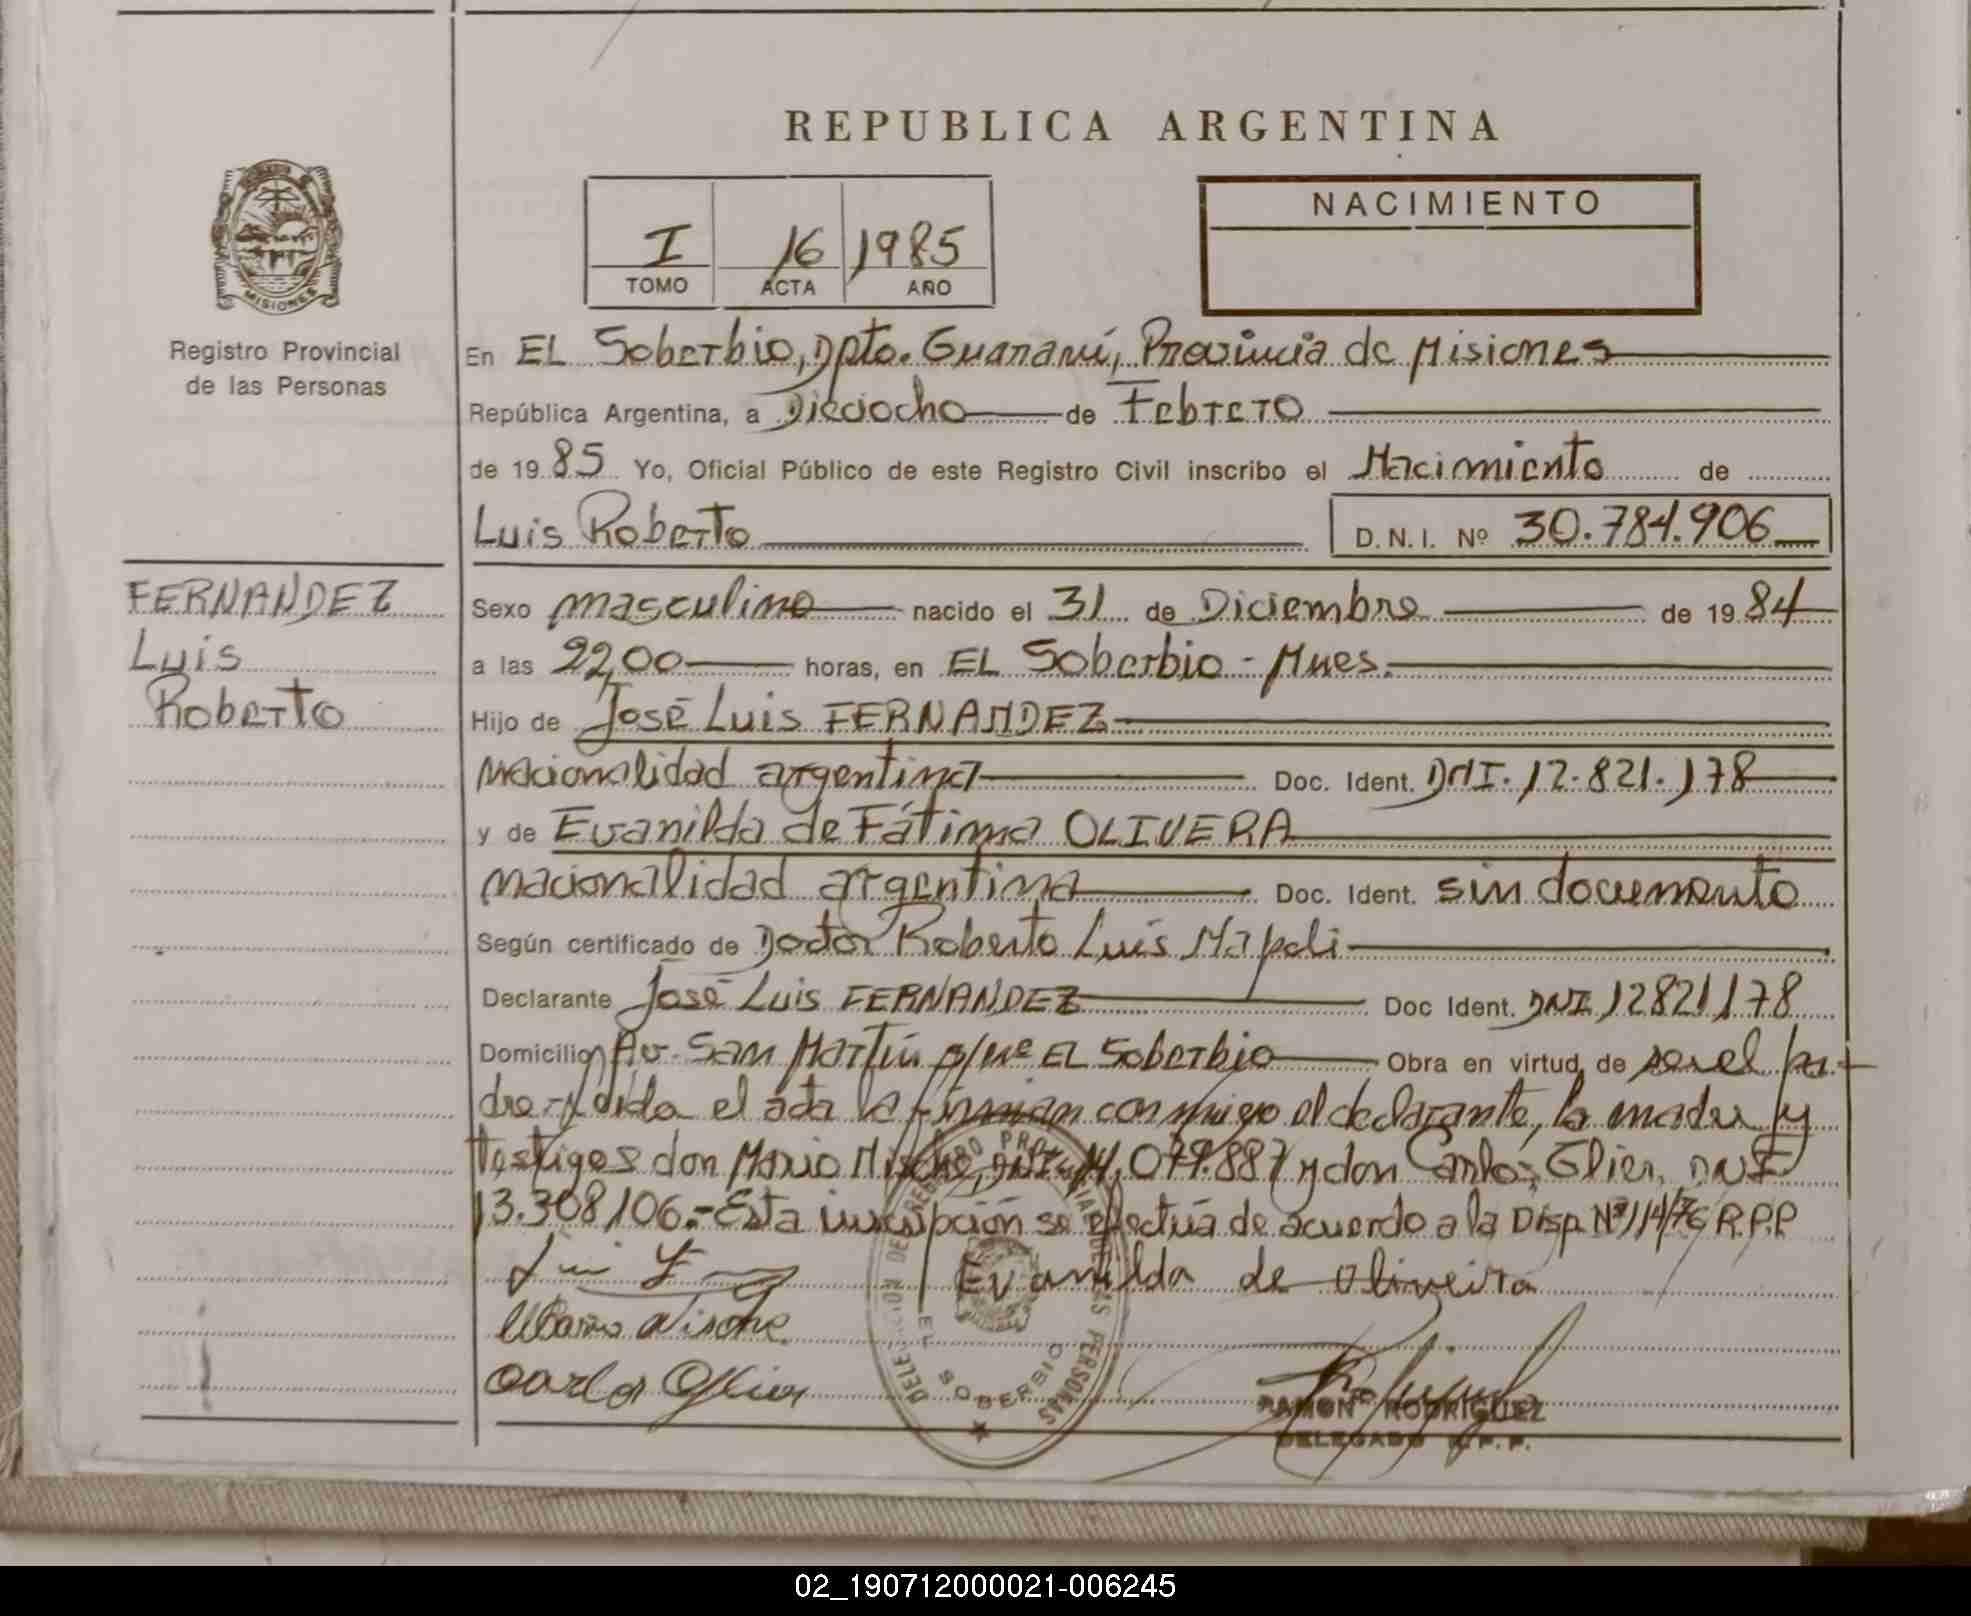 REPUBLICA ARGENTINA
NACIMIENTO
I 16 1985
TOMO ACTA AÑO
MISIONES
Registro Provincial
de las Personas
En EL Soberbio, Dpto. Guaraní, Provincia de Misiones
República Argentina, a Dieciocho de Febrero
de 1985 Yo, Oficial Público de este Registro Civil inscribo el Nacimiento de
Luis Roberto D.N.I. Nº 30.784.906
FERNANDEZ
Luis
Roberto
Sexo masculino nacido el 31 de Diciembre de 1984
a las 22,00 horas, en EL Soberbio - Mnes.
Hijo de José Luis FERNANDEZ
nacionalidad argentina Doc. Ident. DNI. 12.821.178
y de Evanilda de Fátima OLIVERA
nacionalidad argentina Doc. Ident. sin documento
Según certificado de Doctor Roberto Luis Napoli
Declarante José Luis FERNANDEZ Doc Ident. DNI 12821178
Domicilio Av. San Martín s/nº EL Soberbio Obra en virtud de ser el pa-
dre.- Leída el acta la firman conmigo el declarante, la madre y
testigos don Mario Nische, DNI 14.079.887 y don Carlos Glier, DNI
13.308.106.- Esta inscripción se efectúa de acuerdo a la Disp. Nº 114/76 R.P.P
Evanilda de Oliveira
Mario Nische
Carlos Glier
DELEGACION DEL REGISTRO PROVINCIAL DE LAS PERSONAS
EL SOBERBIO
RAMON RODRIGUEZ
DELEGADO R.P.P.
02_190712000021-006245